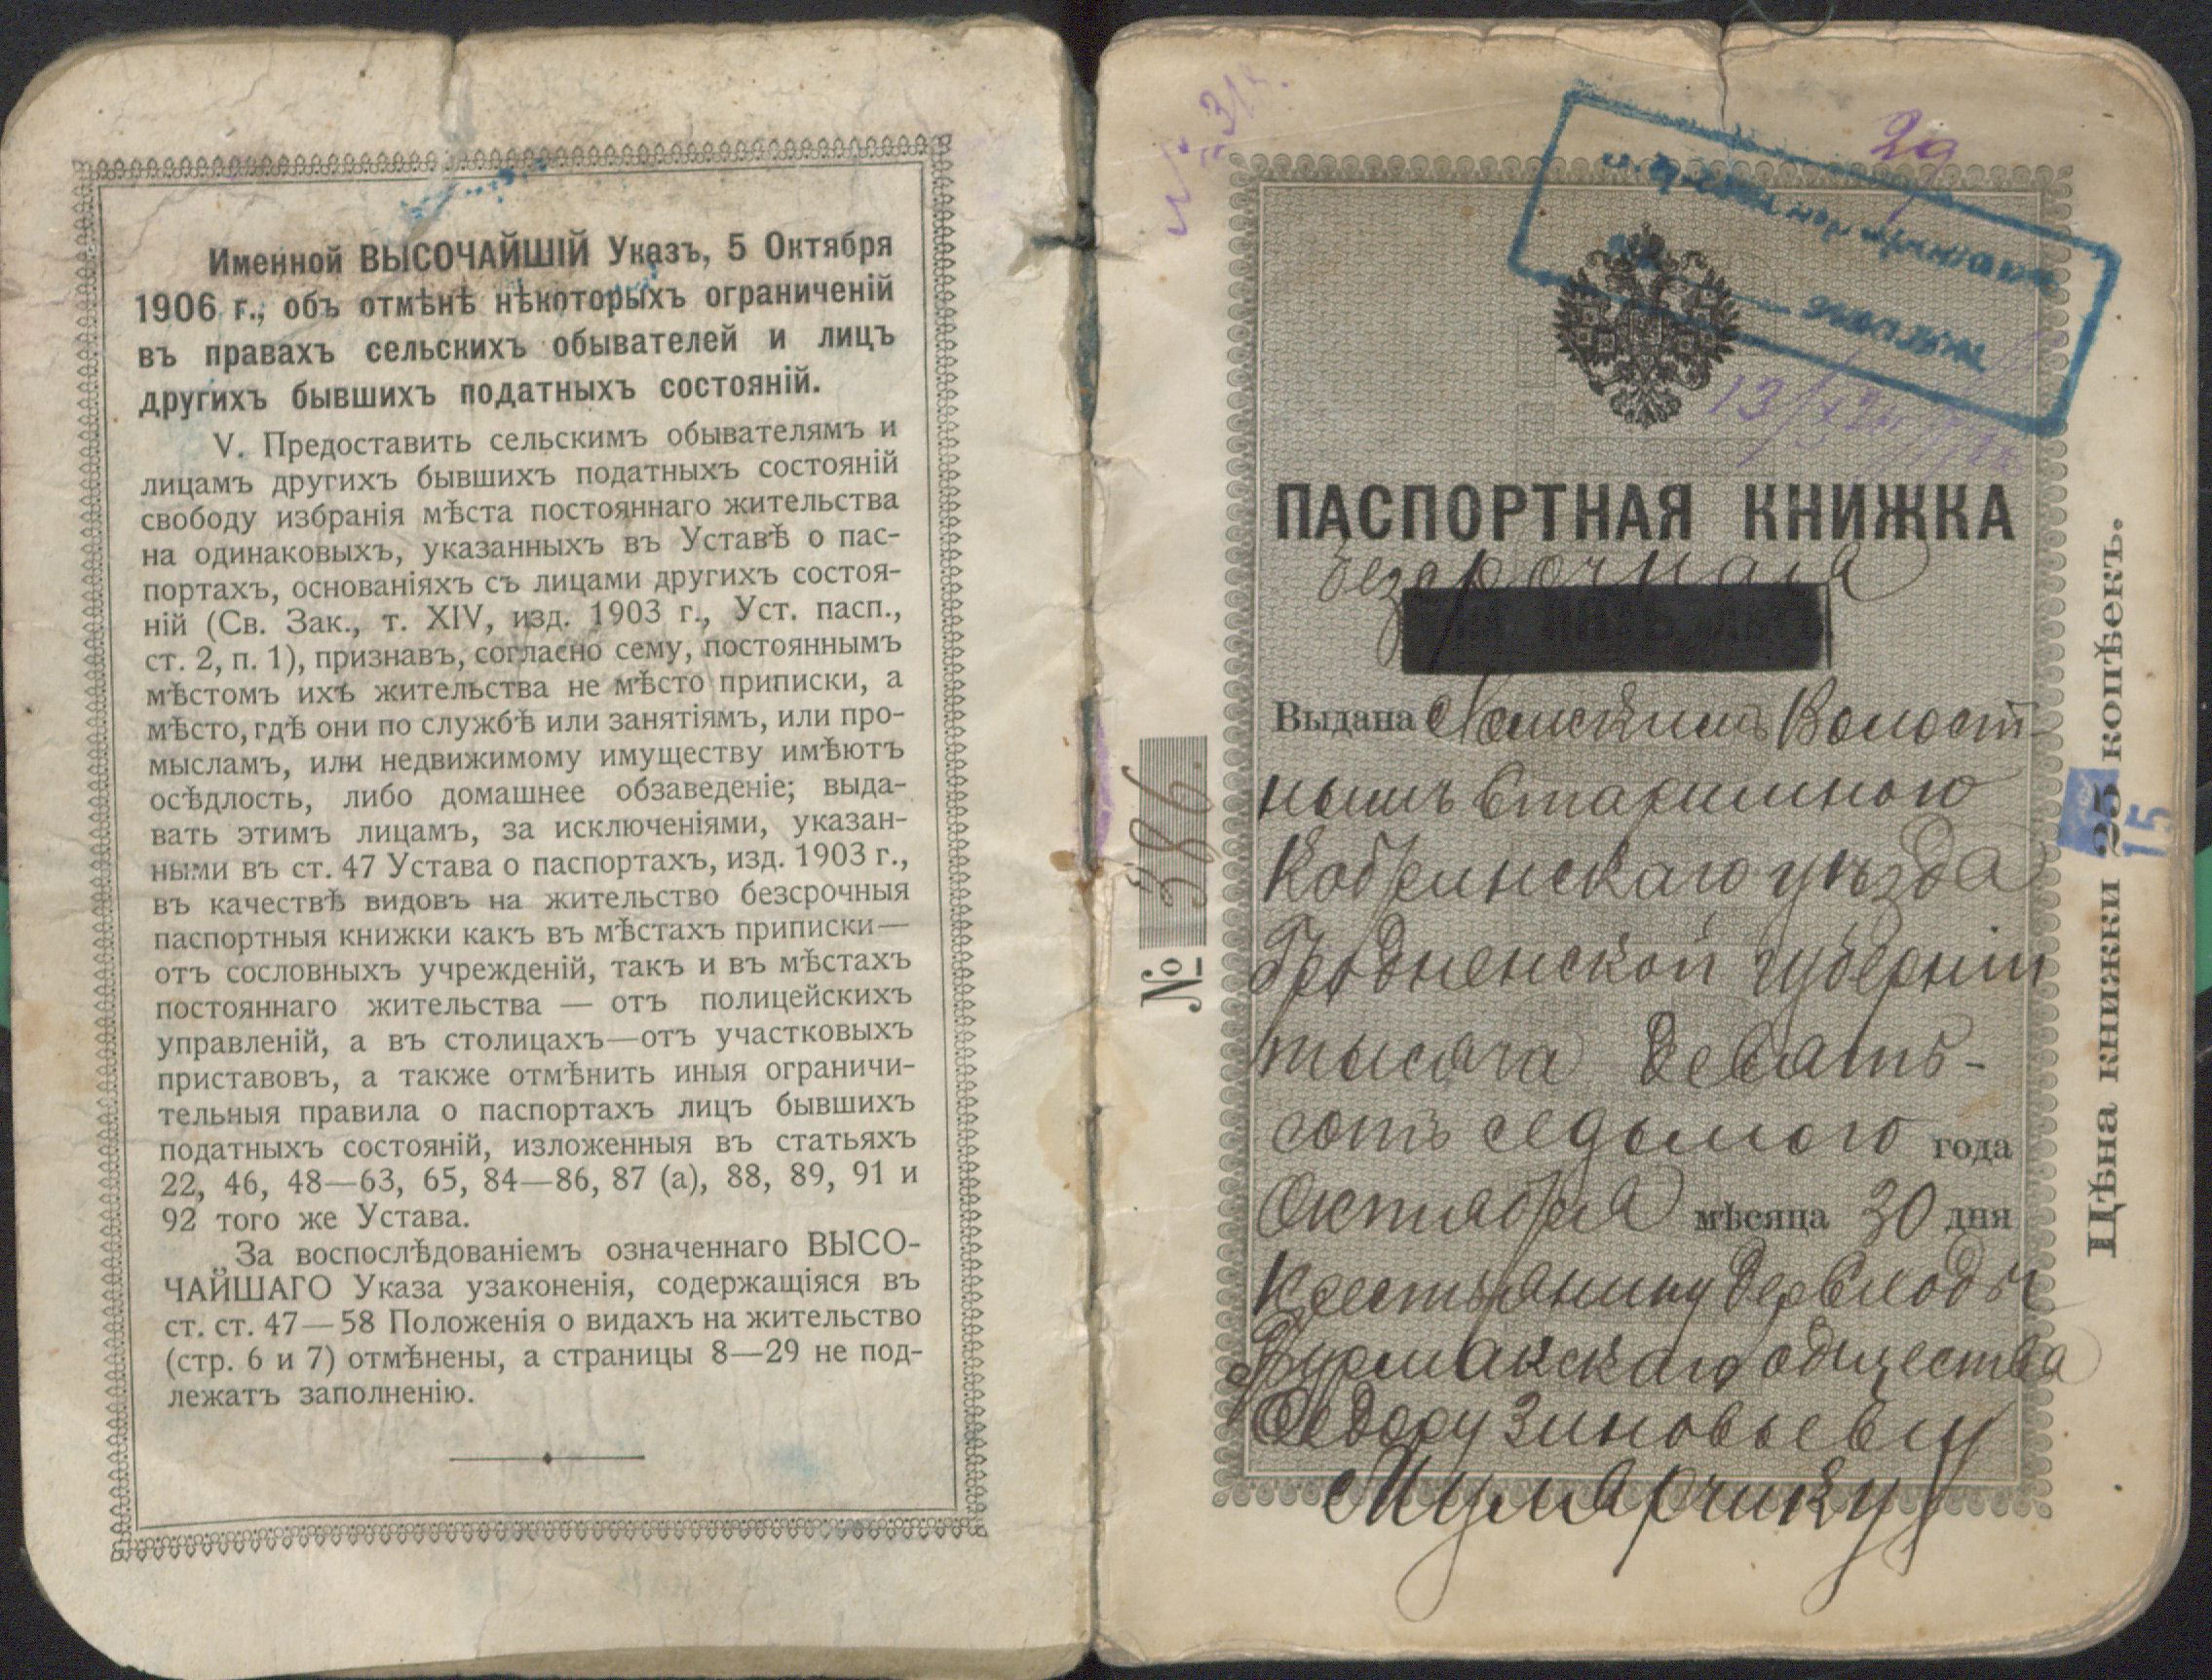 Именной ВЫСОЧАЙШІЙ Указъ, 5 Октября
1906 г., объ отмѣнѣ нѣкоторыхъ ограниченій
въ правахъ сельскихъ обывателей и лицъ
другихъ бывшихъ податныхъ состояній.
V. Предоставить сельскимъ обывателямъ и
лицамъ другихъ бывшихъ податныхъ состояній
свободу избранія мѣста постояннаго жительства
на одинаковыхъ, указанныхъ въ Уставѣ о пас-
портахъ, основаніяхъ съ лицами другихъ состоя-
ній (Св. Зак., т. XIV, изд. 1903 г., Уст. пасп.,
ст. 2, п. 1), признавъ, согласно сему, постояннымъ
мѣстомъ ихъ жительства не мѣсто приписки, а
мѣсто, гдѣ они по службѣ или занятіямъ, или про-
мысламъ, или недвижимому имуществу имѣютъ
осѣдлость, либо домашнее обзаведеніе; выда-
вать этимъ лицамъ, за исключеніями, указан-
ными въ ст. 47 Устава о паспортахъ, изд. 1903 г.,
въ качествѣ видовъ на жительство безсрочныя
паспортныя книжки какъ въ мѣстахъ приписки—
отъ сословныхъ учрежденій, такъ и въ мѣстахъ
постояннаго жительства — отъ полицейскихъ
управленій, а въ столицахъ—отъ участковыхъ
приставовъ, а также отмѣнить иныя ограничи-
тельныя правила о паспортахъ лицъ бывшихъ
податныхъ состояній, изложенныя въ статьяхъ
22, 46, 48—63, 65, 84—86, 87 (а), 88, 89, 91 и
92 того же Устава.
За воспослѣдованіемъ означеннаго ВЫСО-
ЧАЙШАГО Указа узаконенія, содержащіяся въ
ст. ст. 47—58 Положенія о видахъ на жительство
(стр. 6 и 7) отмѣнены, а страницы 8—29 не под-
лежатъ заполненію.
29
ПАСПОРТНАЯ КНИЖКА
Безсрочная
Выдана Волост-
нымъ Старшиною
Кобринскаго уѣзда
Гродненской губерніи
тысяча девять-
сотъ седьмого года
Октября мѣсяца 30 дня
Крестьянину дер Слоды
общества
Федору Зиновьеву
Мулярчику
№ 386.
Цѣна книжки 25 копѣекъ.
15